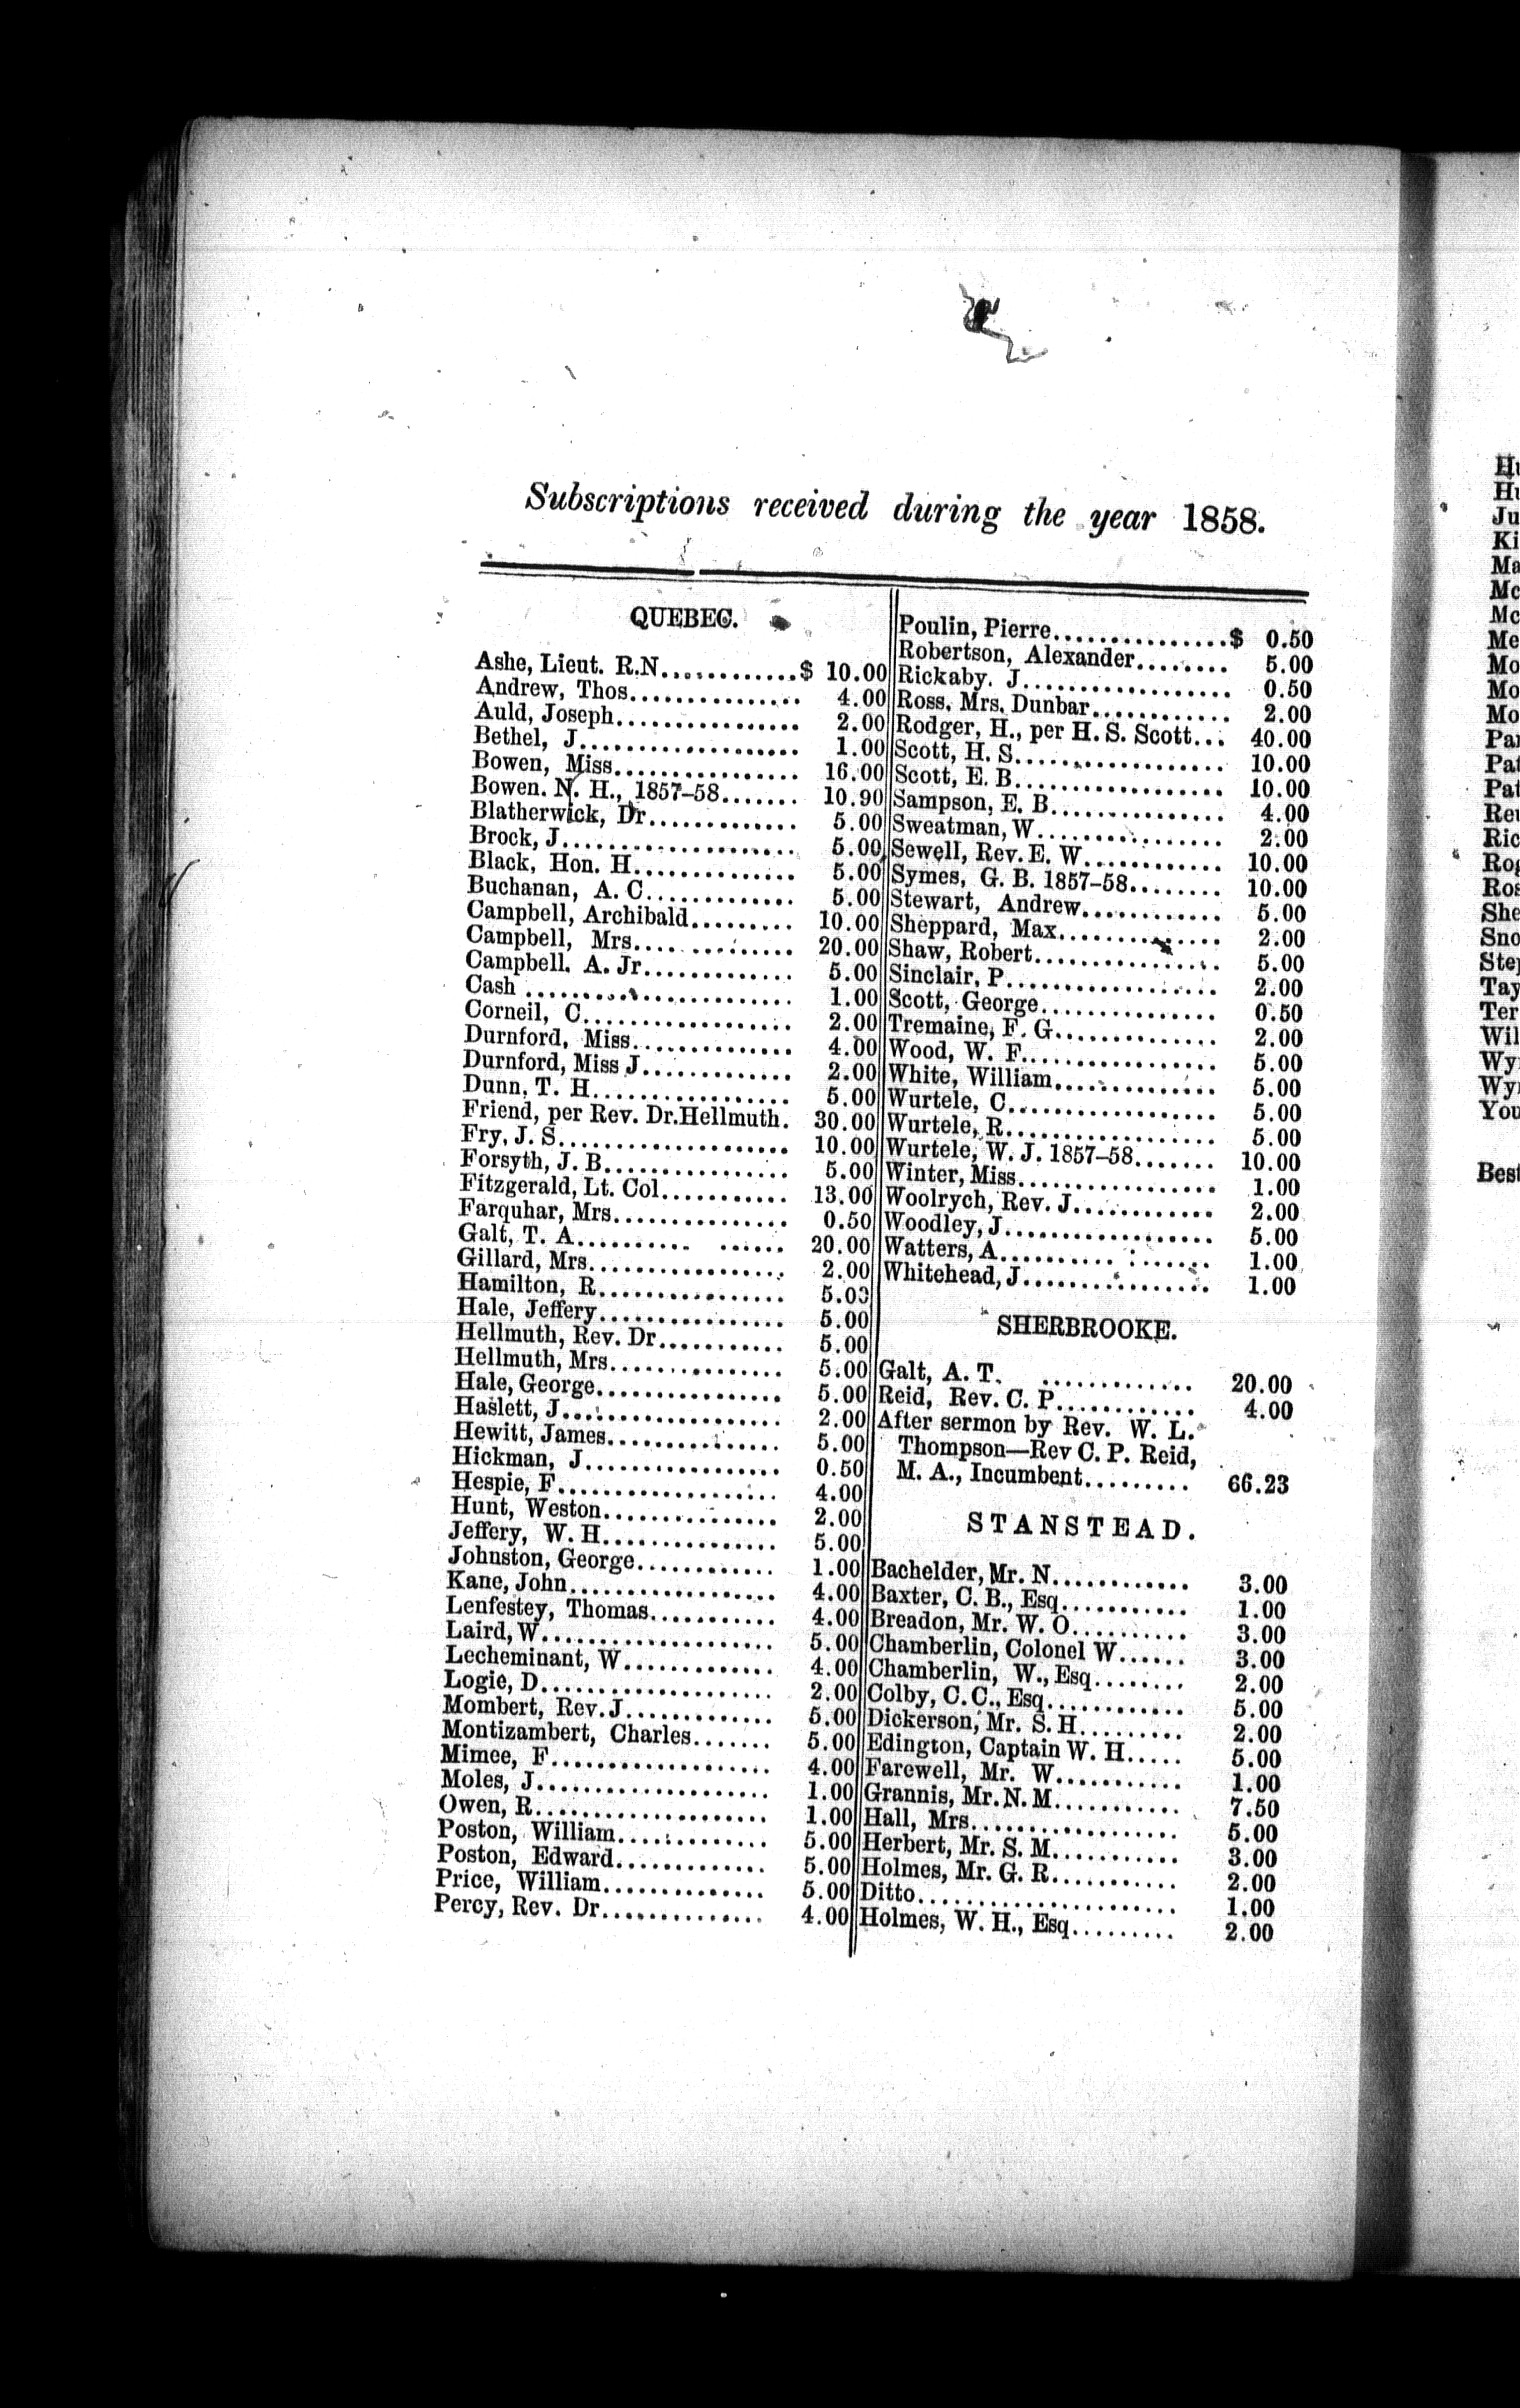 Subscriptions received during the year 1858.
QUEBEC.
Ashe, Lieut. R.N............$ 10.00
Andrew, Thos............... 4.00
Auld, Joseph................ 2.00
Bethel, J................... 1.00
Bowen, Miss................ 16.00
Bowen. N. H., 1857-58....... 10.90
Blatherwick, Dr............. 5.00
Brock, J.................... 5.00
Black, Hon. H.............. 5.00
Buchanan, A. C............. 5.00
Campbell, Archibald......... 10.00
Campbell, Mrs.............. 20.00
Campbell. A. Jr............. 5.00
Cash ....................... 1.00
Corneil, C.................. 2.00
Durnford, Miss.............. 4.00
Durnford, Miss J............. 2.00
Dunn, T. H................. 5.00
Friend, per Rev. Dr.Hellmuth. 30.00
Fry, J. S.................... 10.00
Forsyth, J. B................ 5.00
Fitzgerald, Lt. Col........... 13.00
Farquhar, Mrs............... 0.50
Galt, T. A.......... ...... 20.00
Gillard, Mrs................. 2.00
Hamilton, R................ 5.00
Hale, Jeffery................ 5.00
Hellmuth, Rev. Dr........... 5.00
Hellmuth, Mrs............... 5.00
Hale, George................ 5.00
Haslett, J................... 2.00
Hewitt, James............... 5.00
Hickman, J................. 0.50
Hespie, F................... 4.00
Hunt, Weston............... 2.00
Jeffery, W. H............... 5.00
Johnston, George............ 1.00
Kane, John.................. 4.00
Lenfestey, Thomas........... 4.00
Laird, W.................... 5.00
Lecheminant, W............. 4.00
Logie, D.................... 2.00
Mombert, Rev. J............. 5.00
Montizambert, Charles....... 5.00
Mimee, F................... 4.00
Moles, J.................... 1.00
Owen, R.................... 1.00
Poston, William............. 5.00
Poston, Edward............. 5.00
Price, William.............. 5.00
Percy, Rev. Dr.............. 4.00
Poulin, Pierre...............$ 0.50
Robertson, Alexander........ 5.00
Rickaby. J.................. 0.50
Ross, Mrs. Dunbar............ 2.00
Rodger, H., per H. S. Scott... 40.00
Scott, H. S.................. 10.00
Scott, E. B.................. 10.00
Sampson, E. B............... 4.00
Sweatman, W................ 2.00
Sewell, Rev. E. W............ 10.00
Symes, G. B. 1857-58........ 10.00
Stewart, Andrew............ 5.00
Sheppard, Max.............. 2.00
Shaw, Robert................ 5.00
Sinclair, P.................. 2.00
Scott, George............... 0.50
Tremaine, F. G.............. 2.00
Wood, W. F................. 5.00
White, William.............. 5.00
Wurtele, C.................. 5.00
Wurtele, R.................. 5.00
Wurtele, W. J. 1857-58....... 10.00
Winter, Miss................. 1.00
Woolrych, Rev. J............ 2.00
Woodley, J.................. 5.00
Watters, A.................. 1.00
Whitehead, J................ 1.00
SHERBROOKE.
Galt, A. T. ............. 20.00
Reid, Rev. C. P............ 4.00
After sermon by Rev. W. L.
Thompson—Rev C. P. Reid,
M. A., Incumbent......... 66.23
STANSTEAD.
Bachelder, Mr. N............ 3.00
Baxter, C. B., Esq........... 1.00
Breadon, Mr. W. O.......... 3.00
Chamberlin, Colonel W...... 3.00
Chamberlin, W., Esq........ 2.00
Colby, C. C., Esq............ 5.00
Dickerson, Mr. S. H......... 2.00
Edington, Captain W. H..... 5.00
Farewell, Mr. W........... 1.00
Grannis, Mr. N. M........... 7.50
Hall, Mrs.................. 5.00
Herbert, Mr. S. M........... 3.00
Holmes, Mr. G. R........... 2.00
Ditto...................... 1.00
Holmes, W. H., Esq......... 2.00